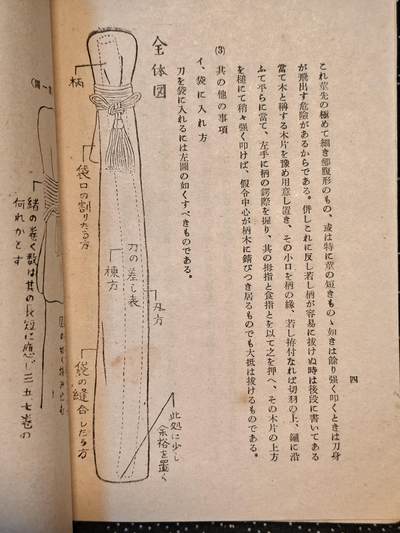 四
これ莖先の極めて細き卽腹形のもの、或は特に莖の短きもの丶如きは餘り强く叩くときは刀身
が飛出す危險があるからである。倂しこれに反し若し柄が容易に拔けぬ時は後段に書いてある
當て木と稱する木片を豫め用意し置き、その小口を柄の緣、若し拵付なれば切羽の上、鎺に沿
ふて平らに當て、左手に柄の鍔際を握り、其の拇指と食指とを以て之を押へ、その木片の上方
を槌にて稍々强く叩けば、假令中心が柄木に錆びつき居るものでも大抵は拔けるものである。
(3) 其の他の事項
イ、袋に入れ方
刀を袋に入れるには左圖の如くすべきものである。
全体図
柄
袋口の割りたる方
刀の差し表
棟方
刃方
袋の縫合したる方
此処に少し
余裕を置く
緒の巻く数は其の長短に應じ三五七巻の
何れかとす